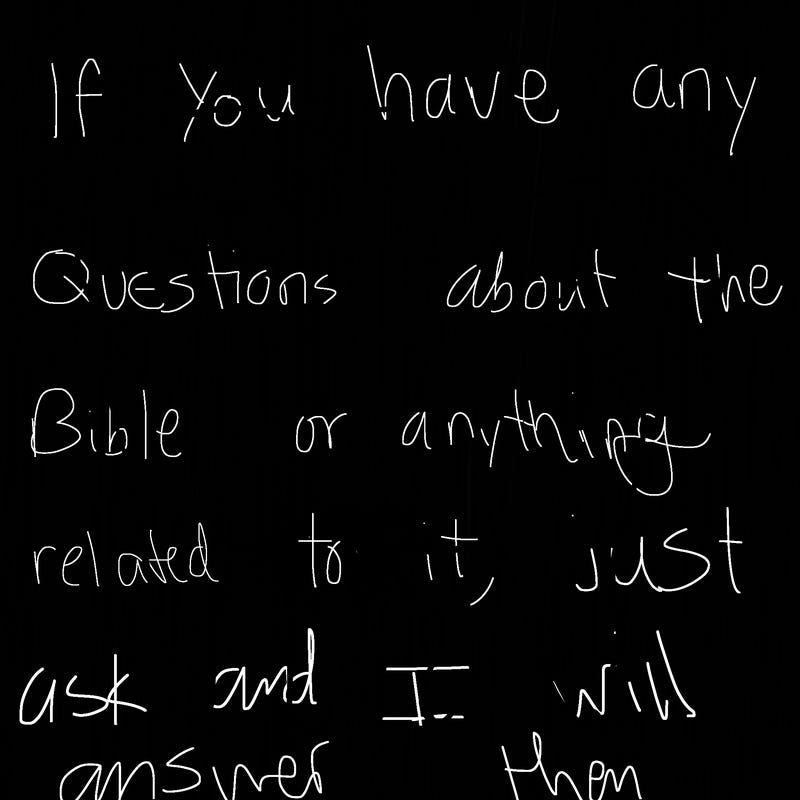 If you have any
Questions about the
Bible or anything
related to it, just
ask and I will
answer then